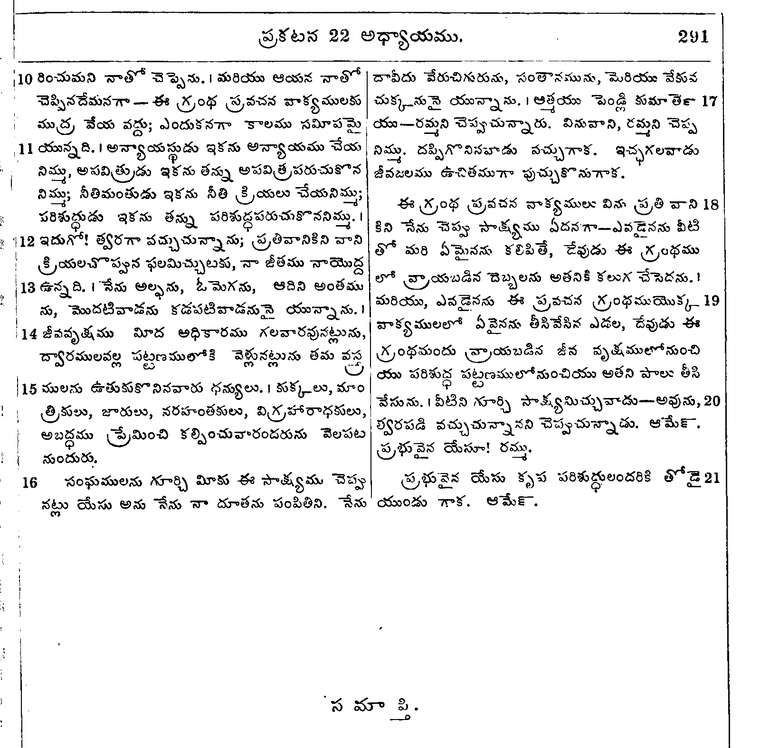 ప్రకటన 22 అధ్యాయము. 291
10 రించుమని నాతో చెప్పెను. । మరియు ఆయన నాతో
చెప్పినదేమనగా — ఈ గ్రంథ ప్రవచన వాక్యములకు
ముద్ర వేయ వద్దు; ఎందుకనగా కాలము సమీపమై
11 యున్నది. । అన్యాయస్థుడు ఇకను అన్యాయము చేయ
నిమ్ము, అపవిత్రుడు ఇకను తన్ను అపవిత్రపరుచుకొన
నిమ్ము; నీతిమంతుడు ఇకను నీతి క్రియలు చేయనిమ్ము;
పరిశుద్ధుడు ఇకను తన్ను పరిశుద్ధపరుచుకొననిమ్ము. ।
12 ఇదుగో! త్వరగా వచ్చుచున్నాను; ప్రతివానికిని వాని
క్రియలచొప్పున ఫలమిచ్చుటకు, నా జీతము నాయొద్ద
13 ఉన్నది. । నేను అల్ఫను, ఓమెగను, ఆదిని అంతము
ను, మొదటివాడను కడపటివాడనునై యున్నాను. ।
14 జీవవృక్షము మీద అధికారము గలవారవునట్లును,
ద్వారములవల్ల పట్టణములోకి వెళ్లునట్లును తమ వస్త్ర
15 ములను ఉతుకుకొనినవారు ధన్యులు. । కుక్కలు, మాం
త్రికులు, జారులు, నరహంతకులు, విగ్రహారాధకులు,
అబద్ధము ప్రేమించి కల్పించువారందరును వెలపట
నుందురు.
16 సంఘములను గూర్చి మీకు ఈ సాక్ష్యము చెప్పు
నట్లు యేసు అను నేను నా దూతను పంపితిని. నేను
దావీదు వేరుచిగురును, సంతానమును, మెరియు వేకువ
చుక్కనునై యున్నాను. । ఆత్మయు పెండ్లి కుమార్తె 17
యు—రమ్మని చెప్పుచున్నారు. వినువాని, రమ్మని చెప్ప
నిమ్ము. దప్పిగొనినవాడు వచ్చుగాక. ఇచ్ఛగలవాడు
జీవజలము ఉచితముగా పుచ్చుకొనుగాక.
ఈ గ్రంథ ప్రవచన వాక్యములు విను ప్రతి వాని 18
కిని నేను చెప్పు సాక్ష్యము ఏదనగా—ఎవడైనను వీటి
తో మరి ఏమైనను కలిపితే, దేవుడు ఈ గ్రంథము
లో వ్రాయబడిన దెబ్బలను అతనికి కలుగ చేసెదను. ।
మరియు, ఎవడైనను ఈ ప్రవచన గ్రంథముయొక్క 19
వాక్యములలో ఏవైనను తీసివేసిన ఎడల, దేవుడు ఈ
గ్రంథమందు వ్రాయబడిన జీవ వృక్షములోనుంచి
యు పరిశుద్ధ పట్టణములోనుంచియు అతని పాలు తీసి
వేసును. । వీటిని గూర్చి సాక్ష్యమిచ్చువాడు—అవును, 20
త్వరపడి వచ్చుచున్నానని చెప్పుచున్నాడు. ఆమేన్.
ప్రభువైన యేసూ! రమ్ము.
ప్రభువైన యేసు కృప పరిశుద్ధులందరికి తోడై 21
యుండు గాక. ఆమేన్.
స మా ప్తి.